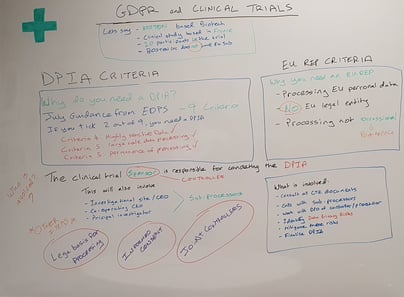 GDPR and CLINICAL TRIALS
Let's say - BOSTON based Biotech
- Clinical study based in France
- 20 participants in the trial
- BOSTON Inc does not have EU sub
DPIA CRITERIA
Why do you need a DPIA?
July Guidance from EDPS - 9 Criteria
If you tick 2 out of 9, you need a DPIA
Criteria 4: Highly sensitive Data ✓
Criteria 5: large scale data processing ✓
Criteria : permanence of processing ✓
EU REP CRITERIA
Why you need an EU REP
- Processing EU personal data
- NO EU legal entity
- Processing not occasional
The clinical trial Sponsor is responsible for conducting the DPIA
CONTROLLER
This will also involve
- Investigational site / CRO
- Co-operating CRO
- Principal investigator
Sub-processors
Legal basis for processing
INFORMED CONSENT
JOINT CONTROLLERS
What is involved:
- consult all CTA documents
- calls with sub-processors
- work with DPO of controller/processor
- Identify Data Privacy Risks
- mitigate those risks
- Finalise DPIA